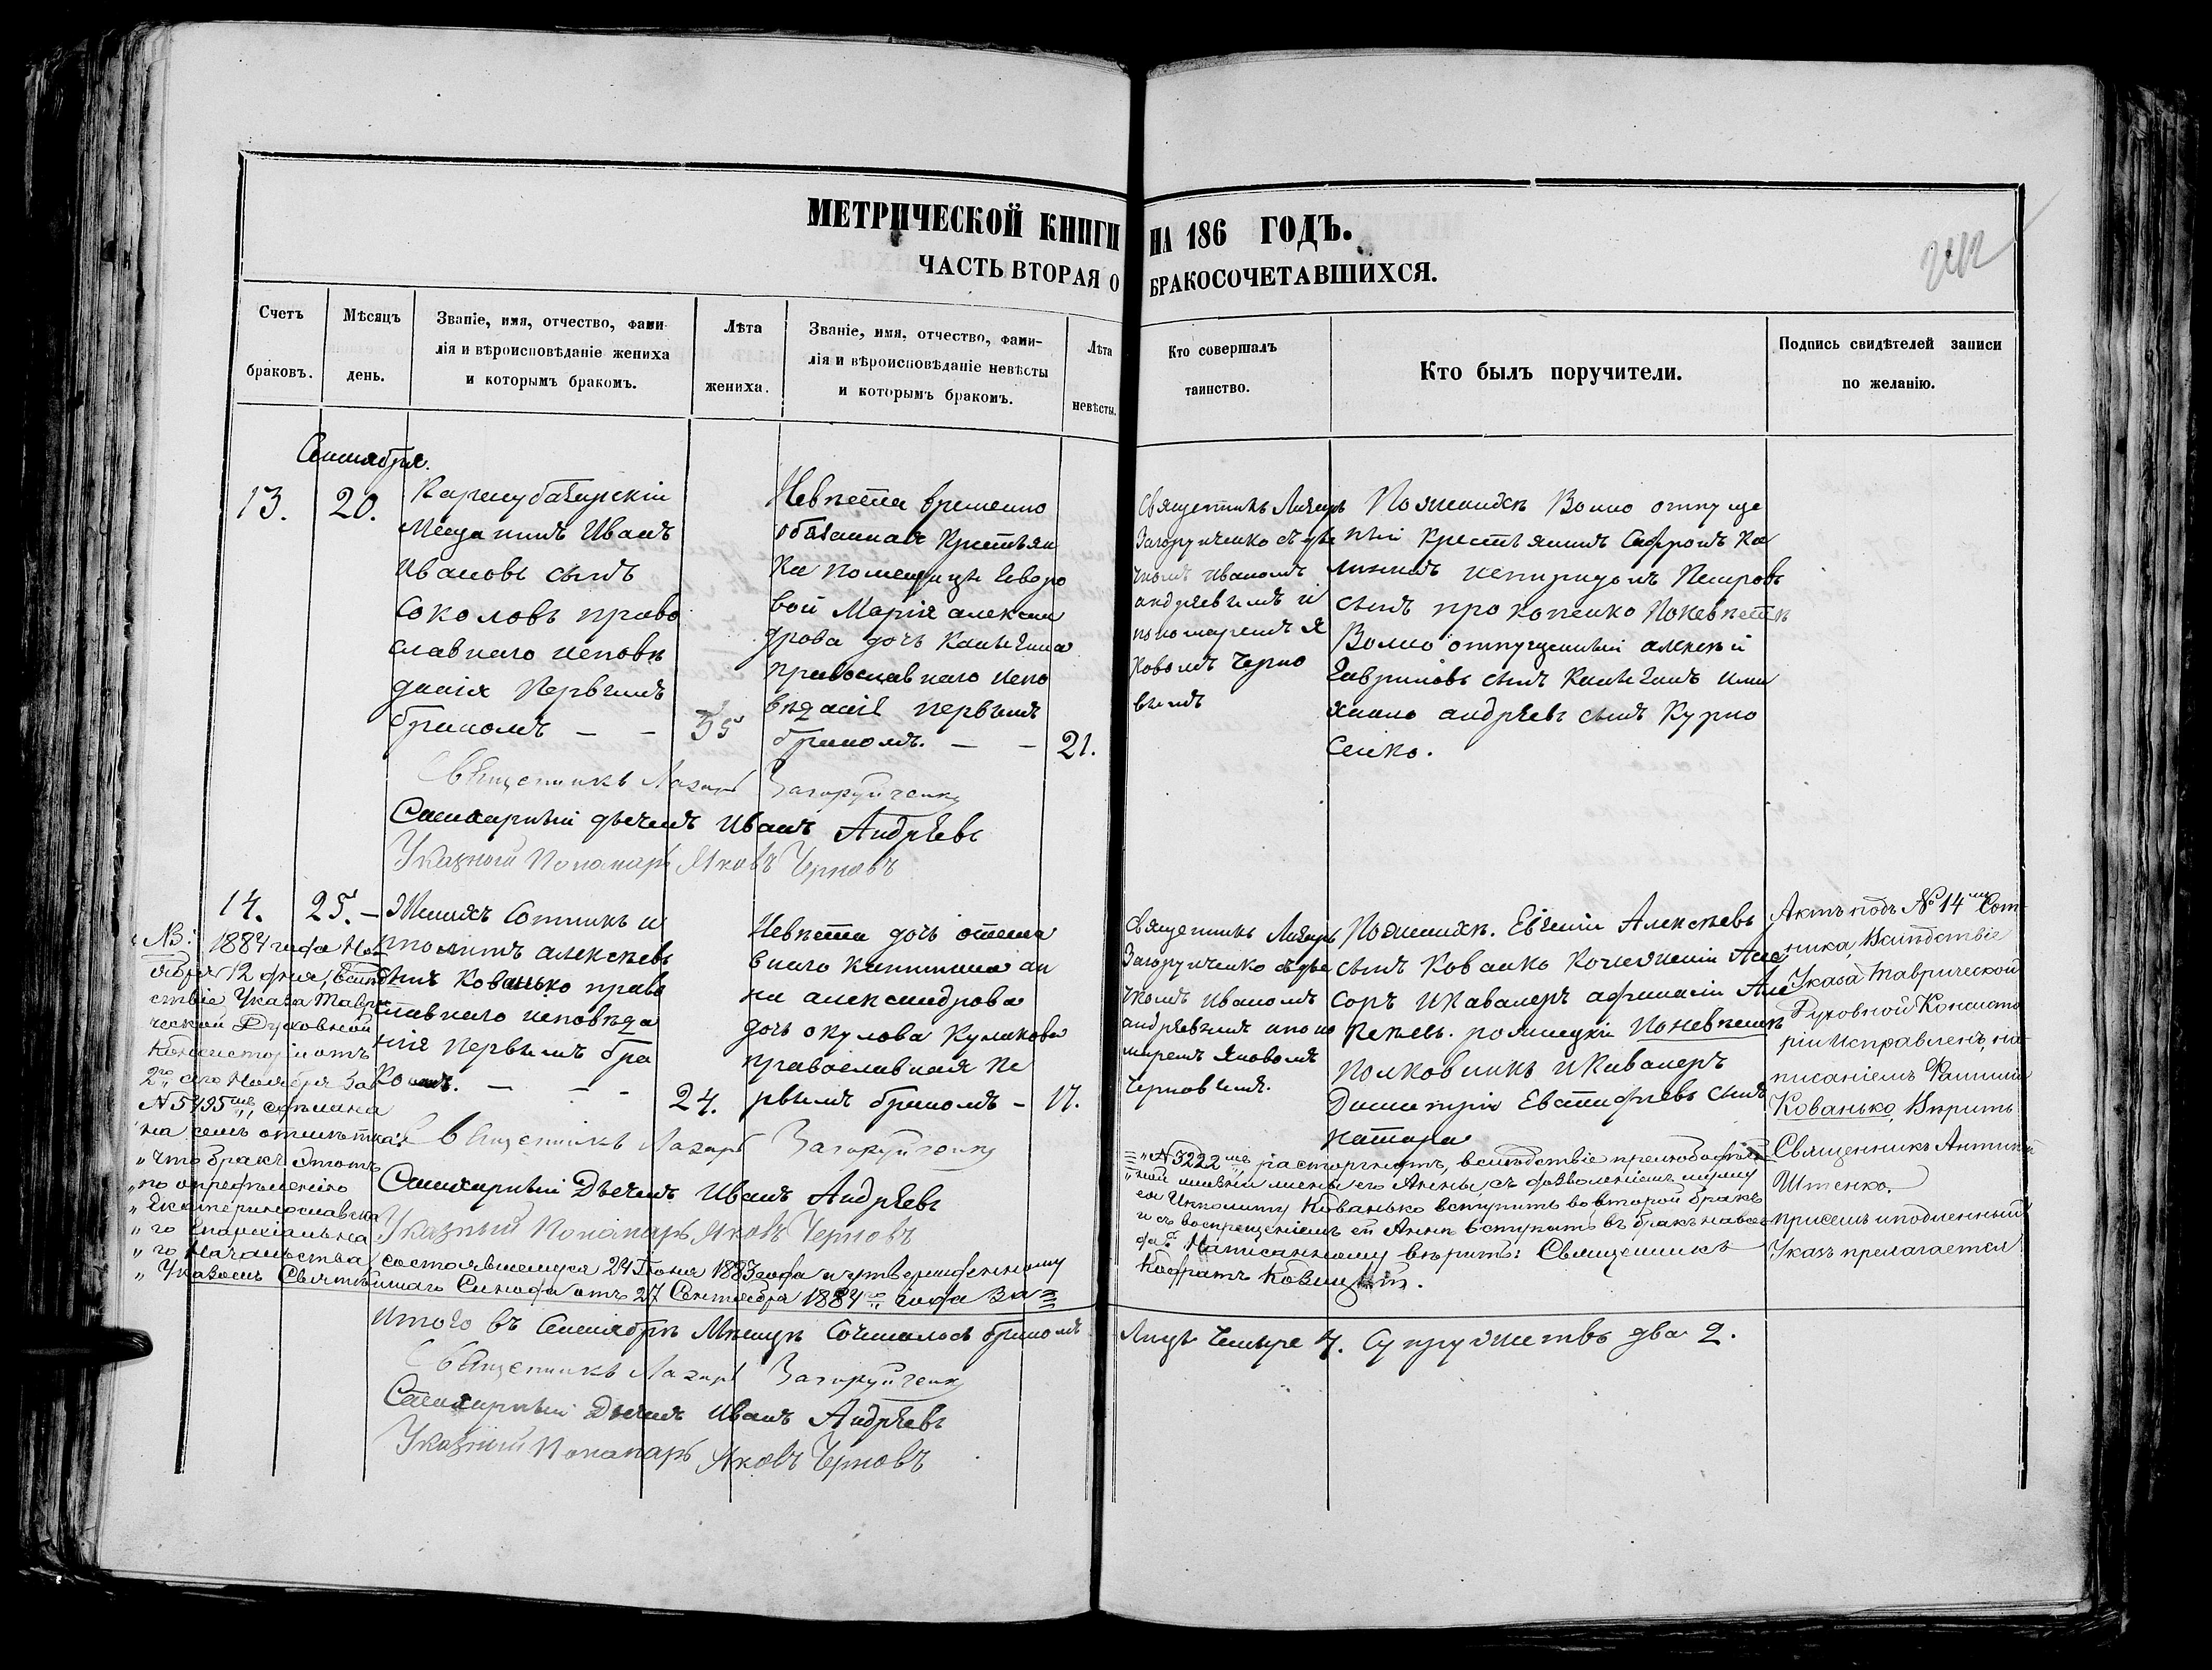 МЕТРИЧЕСКОЙ КНИГИ НА 186 ГОДЪ.
ЧАСТЬ ВТОРАЯ О БРАКОСОЧЕТАВШИХСЯ.
Счетъ браковъ.
Мѣсяцъ день.
Званіе, имя, отчество, фами-
лія и вѣроисповѣданіе жениха
и которымъ бракомъ.
Лѣта
жениха.
Званіе, имя, отчество, фами-
лія и вѣроисповѣданіе невѣсты
и которымъ бракомъ.
Лѣта
невѣсты.
Кто совершалъ
таинство.
Кто былъ поручители.
Подпись свидѣтелей записи
по желанію.
Сентября.
13.
20.
Мещанинъ Иванъ
Ивановъ сынъ
Соколовъ право
славнаго исповѣ
данія первымъ
бракомъ — —
35
Невѣста временно
обязанная Крестьян
ка помещицы
вой Марія алексан
дрова дочь
православнаго испо
вѣданія первымъ
бракомъ. — —
21.
Священникъ Лазарь
Загоруйченко съ дья
чкомъ Иваномъ
андреевымъ и
пономаремъ Я
ковомъ Черно
вымъ
По женихѣ Волно отпуще
ный крестьянинъ Сафронъ Ка
Петровъ
сынъ прокопенко По невѣстѣ
Волно отпущенный алексѣй
Гавриловъ сынъ
андреевъ сынъ Курно
сенко.
Священникъ Лазарь Загоруйченко
Стихарный дьячекъ Иванъ Андреевъ
Указный Понамарь Яковъ Черновъ
14.
25. —
Женихъ Сотникъ и
политъ алексѣевъ
сынъ Кованько право
славнаго исповѣда
нія первымъ бра
комъ. — — —
24.
Невѣста дочь отста
внаго капитана ан
на александрова
дочь окулова Куликова
православная пе
рвымъ бракомъ —
17.
Священникъ Лазарь
Загоруйченко съ дья
чкомъ Иваномъ
андреевымъ и поно
маремъ Яковомъ
Черновымъ.
По женихѣ. Евгеній Алексѣевъ
сынъ Кованко Колежскій Асе
соръ и Кавалеръ афанасій Але
ксѣевъ. По невѣстѣ
Полковникъ и Кавалеръ
Димитрій Евстафіевъ сынъ
Актъ подъ № 14 мъ Сот-
ника, вслѣдствіе
Указа Таврической
Духовной Консисто
ріи исправленъ, на-
писаніемъ Фамиліи
Кованько. Вѣритъ
Священникъ Антоній
Штенко.
При семъ и подленный
Указъ прилагается
NB: 1884 года Но-
ября 12 дня, вслѣд
ствіе Указа Таври
ческой Духовной
Консисторіи отъ
2го сего Ноября за
№ 5735мъ, сдѣлана
на семъ отмѣтка:
„что бракъ этотъ
„по опредѣленію
„Екатеринославска
„го Епархіальна
„го Начальства, состоявшемуся 24 Іюня 1883 года и утвержденному
„Указомъ Святѣйшаго Синода отъ 27 Сентября 1884го года за
„№ 3222мъ, расторгнутъ, вслѣдствіе прелюбодѣй
ной жизни жены его Анны, съ дозволеніемъ мужу
ея Ипполиту Кованько вступить во второй бракъ
и съ воспрещеніемъ ей Аннѣ вступать въ бракъ навсег
да“. Написанному вѣритъ: Священникъ
Кодратъ
Священникъ Лазарь Загоруйченко
Стихарный Дьячекъ Иванъ Андреевъ
Указный Понамарь Яковъ Черновъ
Итого въ Сентябрѣ Мѣсяцѣ Сочеталось бракомъ
Лицъ Четыре 4. Супружествъ два 2.
Священникъ Лазарь Загоруйченко
Стихарный Дьячекъ Иванъ Андреевъ
Указный Понамарь Яковъ Черновъ